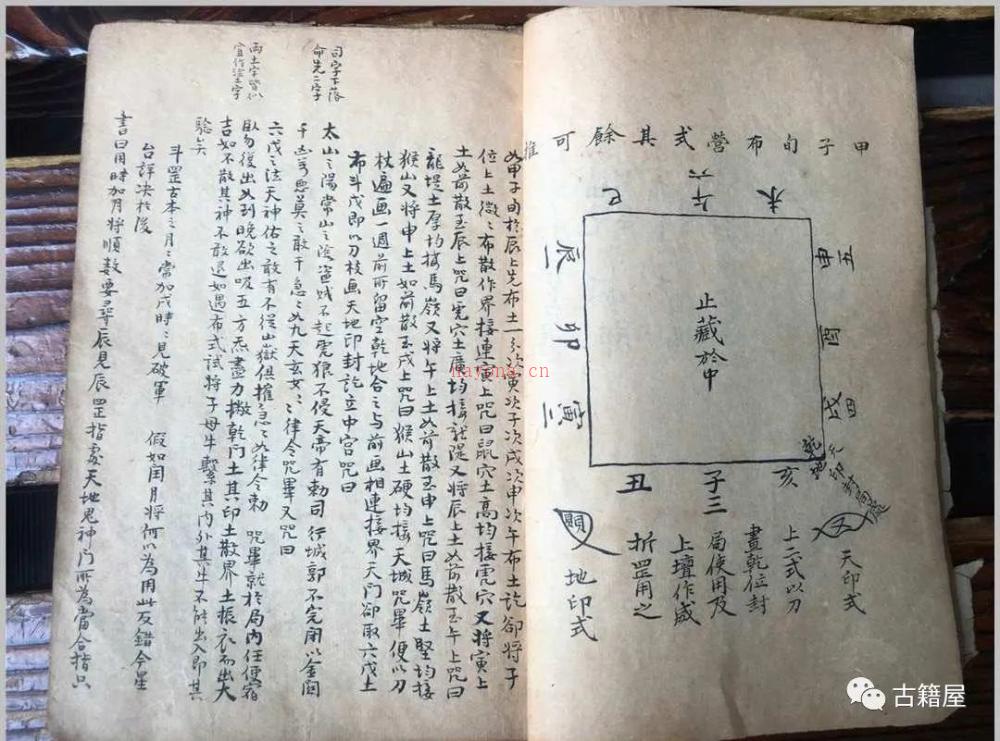 甲子旬布營式其餘可推
未
午六
巳
辰一
卯
寅二
丑
子三
亥
戌四
酉
申五
止藏於中
乾地天印封局處
天印式
上二式以刀
畫乾位封
局使用及
上壇作威
折罡用之
地印式
如甲子旬於辰上先布土一了次寅次子次戌次申次午布土訖卻將子
位上土微之布散作界接連寅上咒曰鼠穴土高均接虎穴又將寅上
土如前散至辰上咒曰虎穴土廣均接龍堤又將辰上土如前散至午上咒曰
龍堤土厚均接馬嶺又將午上土如前散至申上咒曰馬嶺土堅均接
猴山又將申上土如前散至戌上咒曰猴山土硬均接天城咒畢便以刀
杖遍画一週前所留空乾地合之与前画相連接界天门卻取六戊土
布斗戊即以刀枝画天地印封訖立中宫咒曰
司字下落
命先二字
太山之陽常山之陰盜贼不起虎狼不侵天帝有勅司行城郭不完闭以金関
千凶万惡莫之敢干急之如九天玄女之律令咒畢又咒曰
两土字皆似
宜作塗土字
六戊之法天神佑之敢有不從山嶽俱摧急之如律令勅 咒畢就於局内任便宿
臥勿復出如到晚欲出吸五方炁盡力撒乾门土其印土散界土振衣而出大
吉如不散其神不敢退如遇布式試将子母牛繫其内外其牛不能出入即其
驗矣
斗罡古本之月之常加戊時之見破軍 假如閏月将何以為用此友錯今星
台詳決於後
書曰用時加月将順数要尋辰見辰罡指處天地鬼神门所為當合指只
hayona.cn
古籍屋